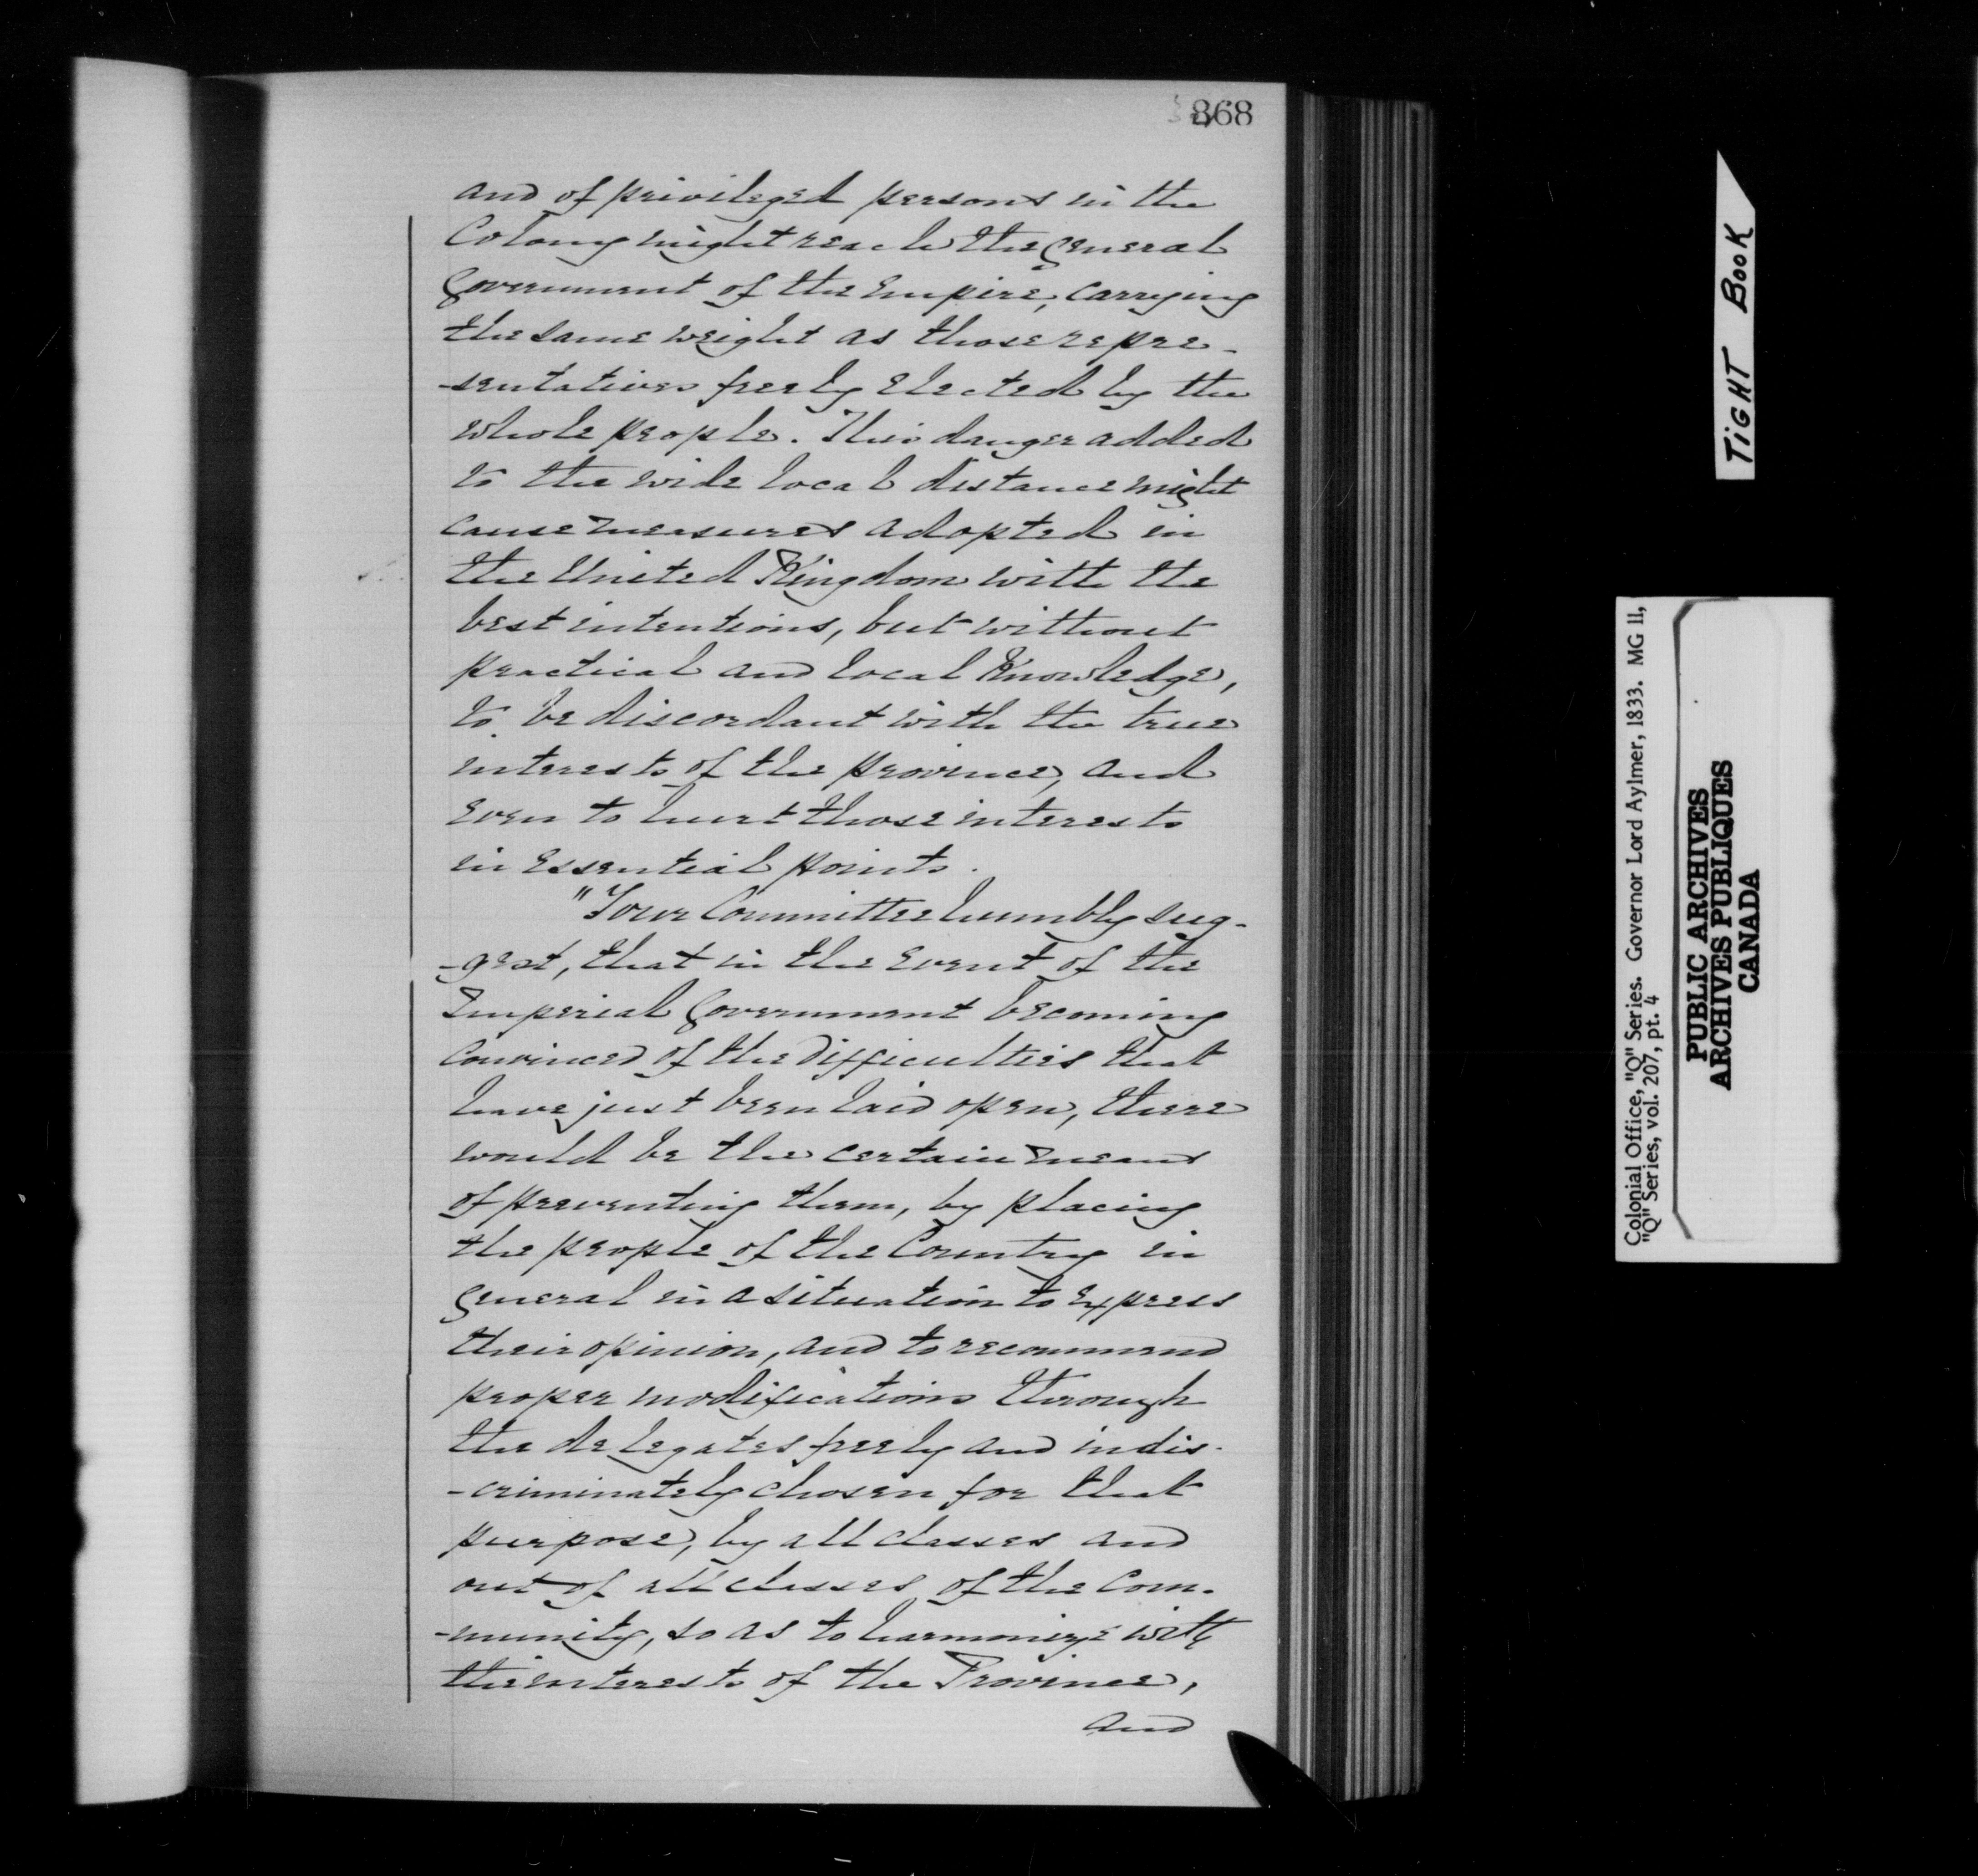 368
and of privileged persons in the
Colony might reach the General
Government of the Empire, carrying
the same weight as those repre-
-sentatives freely elected by the
whole people. This danger added
to the wide local distance might
cause measures adopted in
the United Kingdom with the
best intentions, but without
practical and local Knowledge,
to be discordant with the true
interests of the province, and
even to hurt those interests
in essential points.
"Your Committee humbly sug-
-gest, that in the event of the
Imperial Government becoming
convinced of the difficulties that
have just been laid open, there
would be the certain means
of preventing them, by placing
the people of the Country in
general in a situation to express
their opinion, and to recommend
proper modifications through
the delegates freely and indis-
-criminately chosen for that
purpose, by all classes and
out of all classes of the Com-
-munity, so as to harmonize with
the interests of the Province,
and
TIGHT BOOK
Colonial Office, "Q" Series. Governor Lord Aylmer, 1833. MG 11,
"Q" Series, vol. 207, pt. 4
PUBLIC ARCHIVES
ARCHIVES PUBLIQUES
CANADA